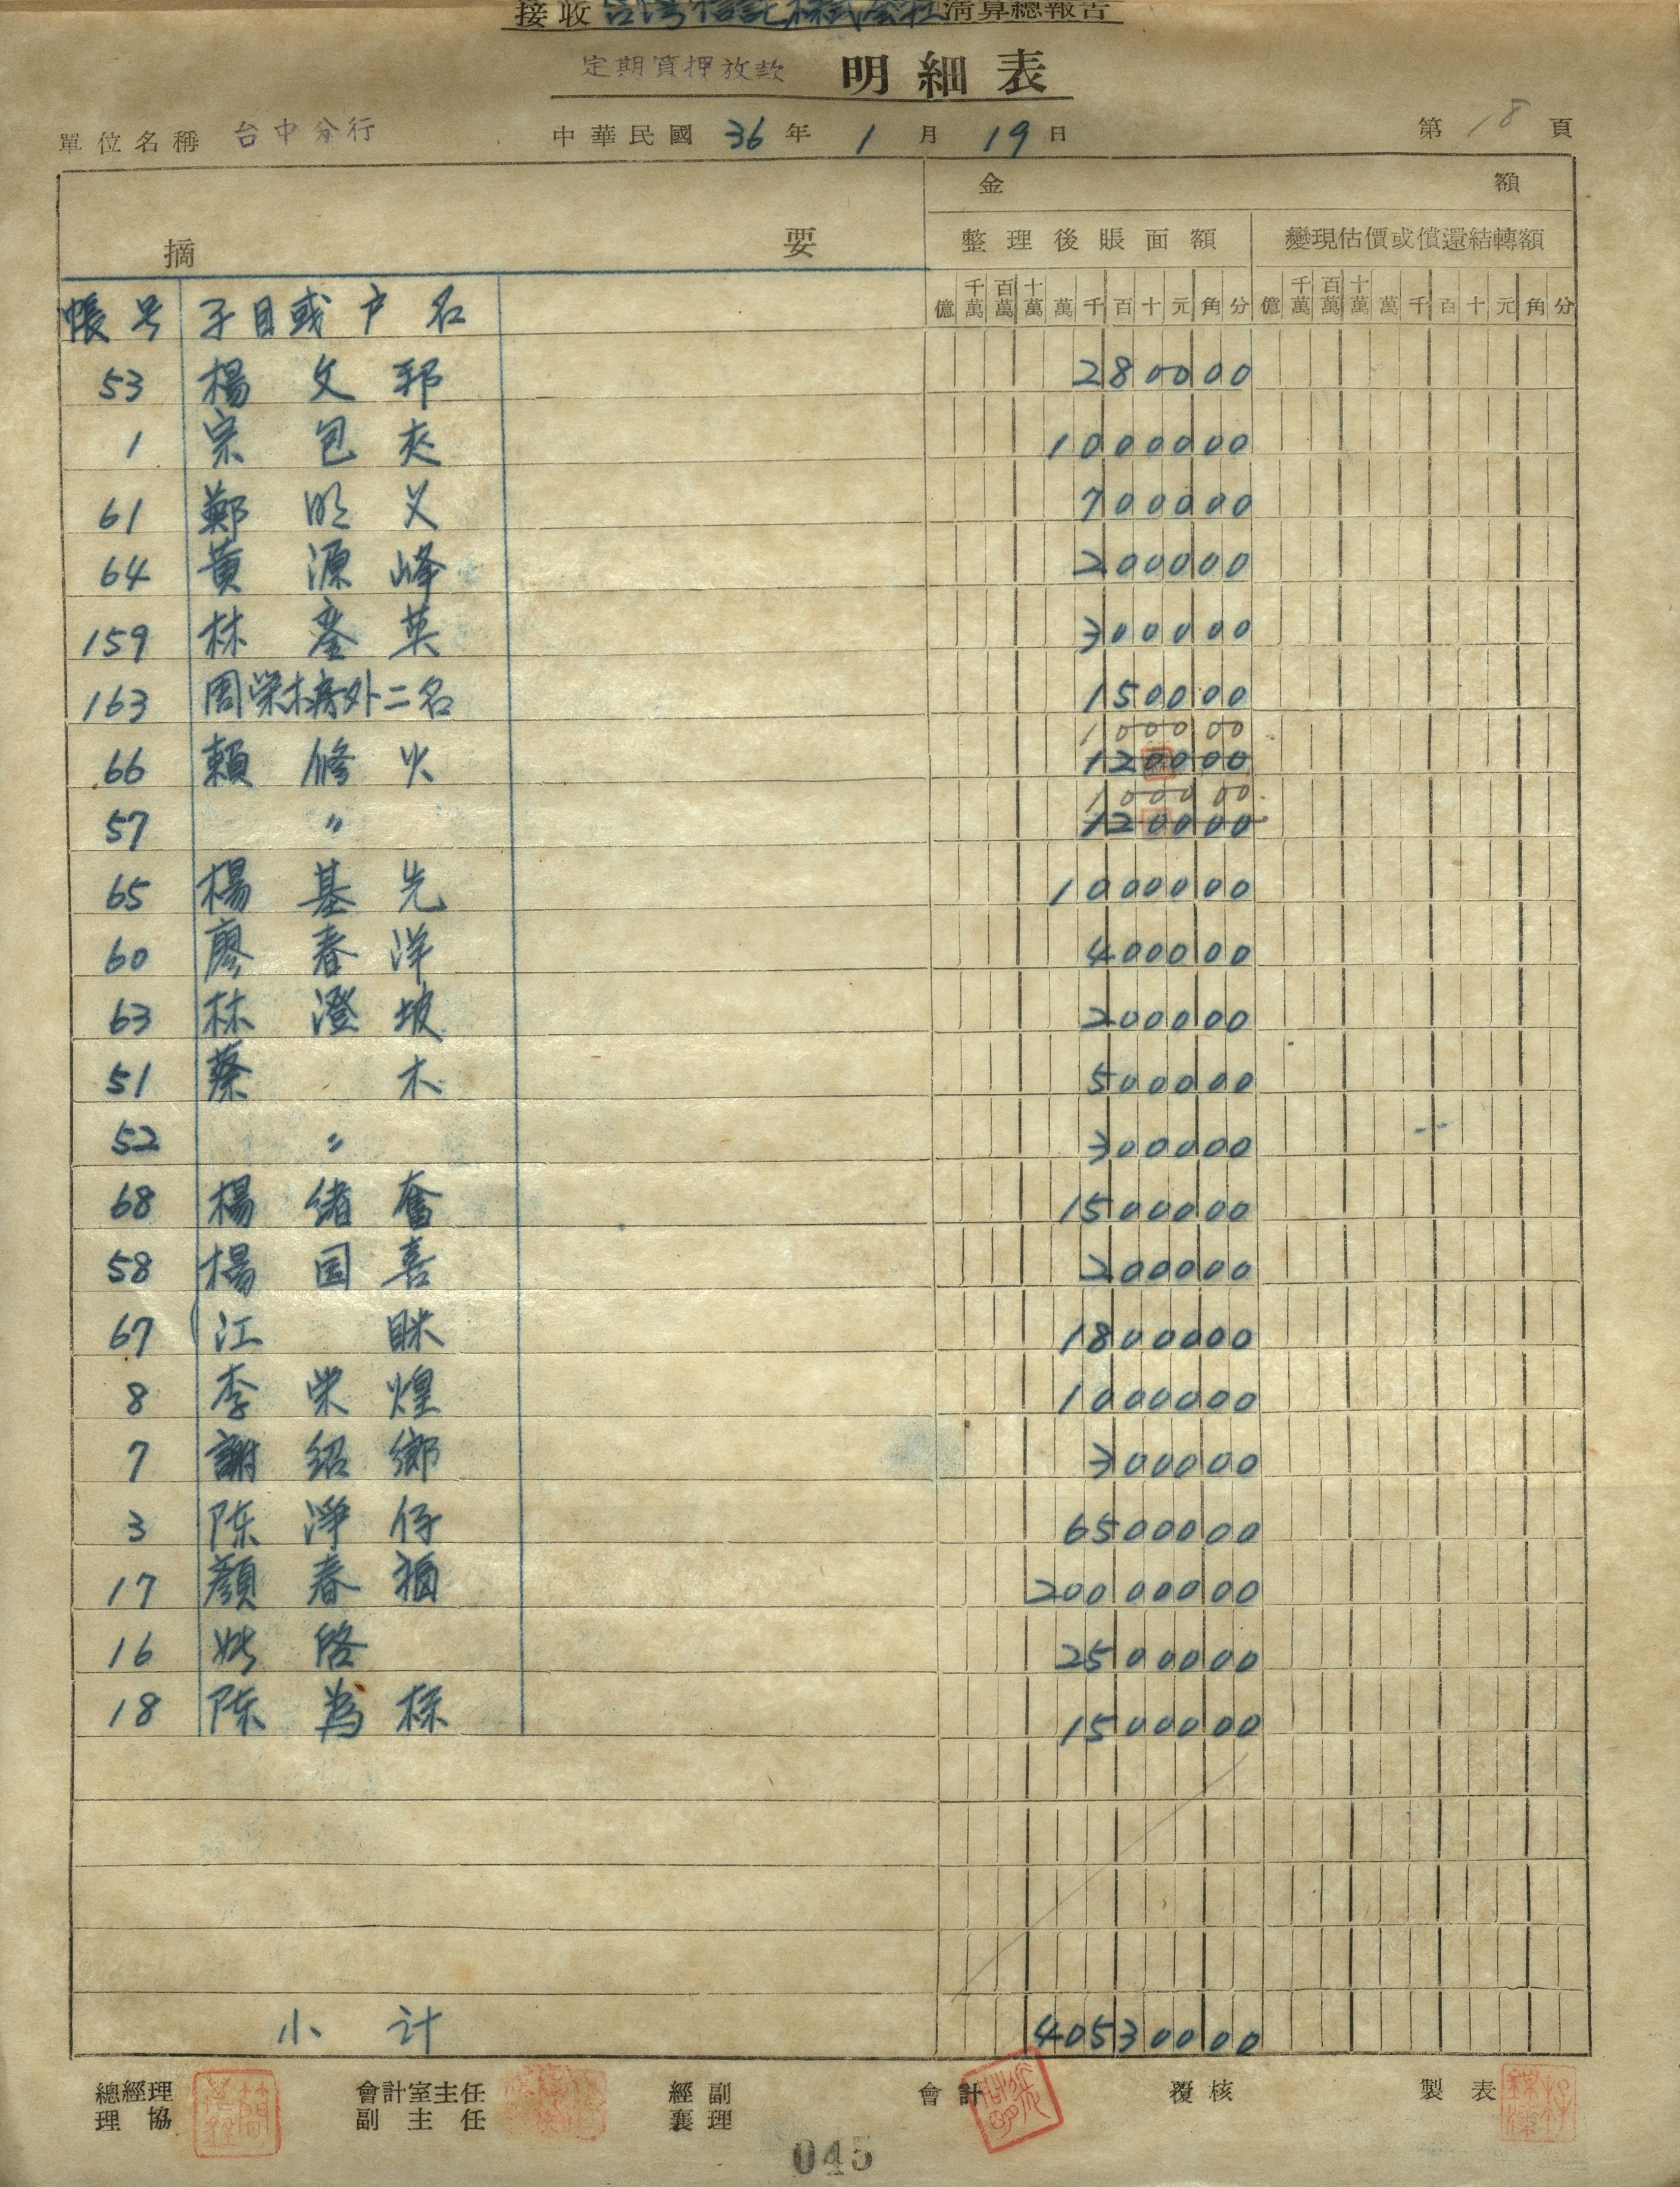 接收台灣信託株式会社清算總報告
定期質押放款 明細表
單位名稱 台中分行 中華民國 36 年 1 月 19 日 第 18 頁
摘要 金額
整理後賬面額 變現估價或償還結轉額
億 千萬 百萬 十萬 萬 千 百 十 元 角 分 億 千萬 百萬 十萬 萬 千 百 十 元 角 分
帳号 子目或户名
53 楊文 280000
1 宗包 1000000
61 鄭明义 700000
64 黃源峰 200000
159 林英 300000
163 周荣外二名 150000
100000
66 賴修火 120000
100000
57 〃 120000
65 楊基先 1000000
60 廖春洋 400000
63 林澄坡 200000
51 蔡木 500000
52 〃 300000
68 楊緒奮 1500000
58 楊国喜 200000
67 江眯 1800000
8 李荣煌 1000000
7 謝紹鄉 300000
3 陈淨仔 6500000
17 顏春福 20000000
16 啓 2500000
18 陈為樑 1500000
小計 40530000
總經理 會計室主任 經副 會計 覆核 製表
理協 副主任 襄理
045